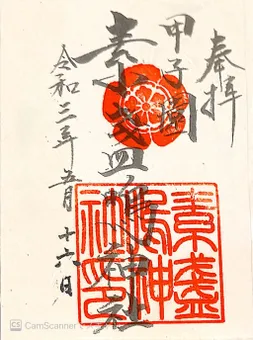 奉拝
甲子園
素盞嗚神社
令和三年五月十六日
素盞
嗚神
社印
CS CamScanner